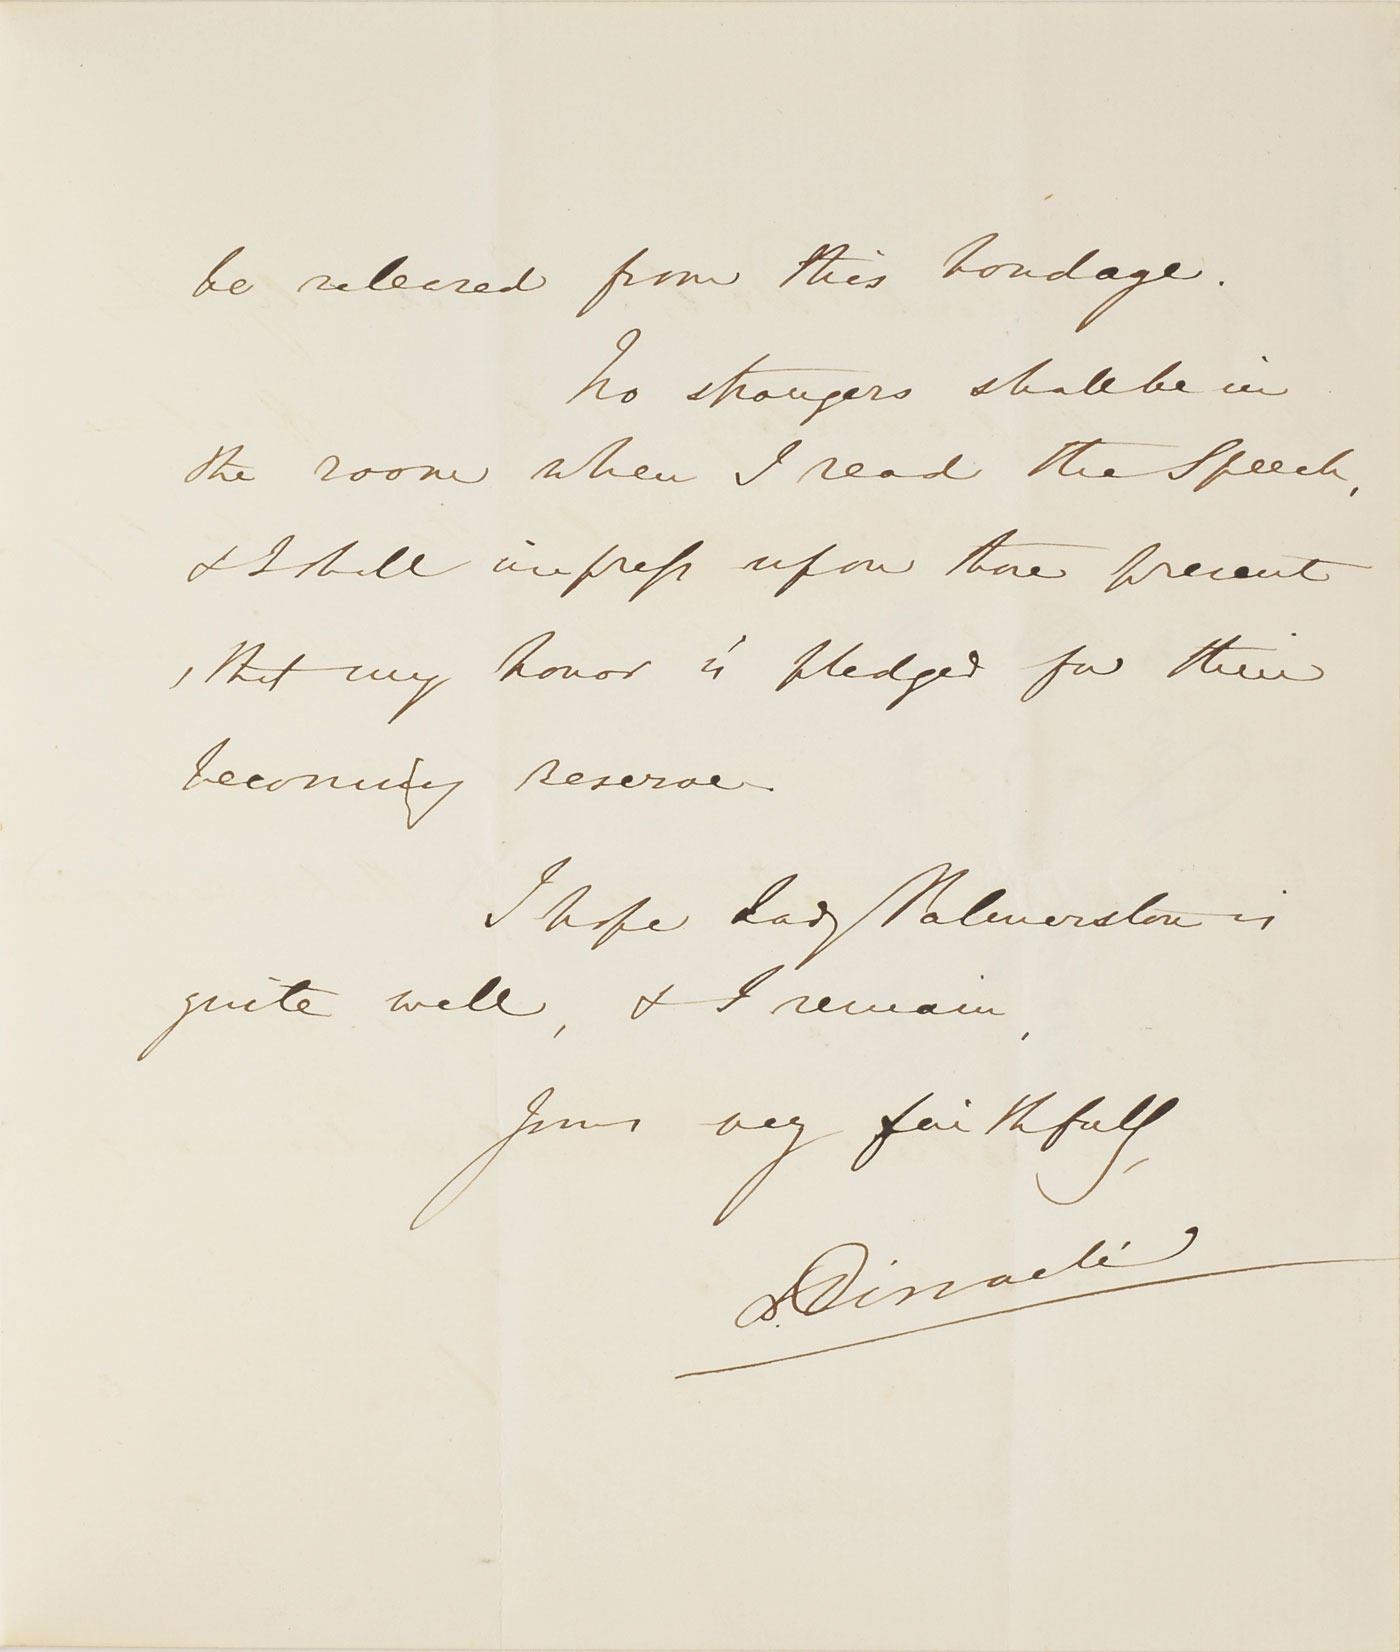 be released from this bondage.
No strangers shall be in
the room when I read the Speech,
& I shall impress upon those present
, that my honor is pledged for their
becoming reserve.
I hope Lady Palmerston is
quite well, & I remain,
Yours very faithfully,
D. Disraeli